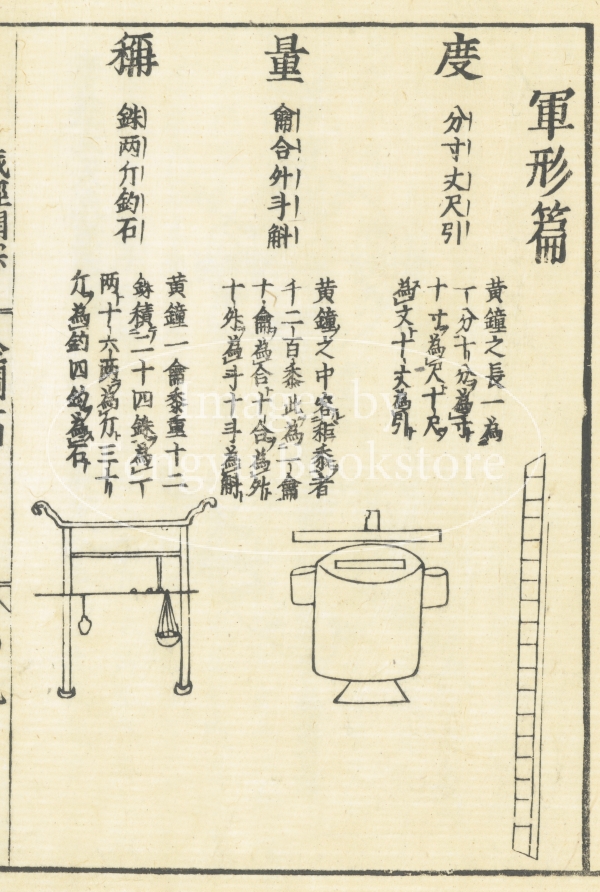 軍形篇
度
分寸丈尺引
黄鐘之長一為
一分十分為寸
十寸為尺十尺
為丈十丈為引
量
龠合升斗斛
黄鐘之中容秬黍者
千二百黍此為一龠
十龠為合十合為升
十升為斗十斗為斛
稱
銖两斤鈞石
黄鐘一龠黍重十二
銖積二十四銖為一
两十六两為斤三十
斤為鈞四鈞為石
Images by
Tengyu Bookstore